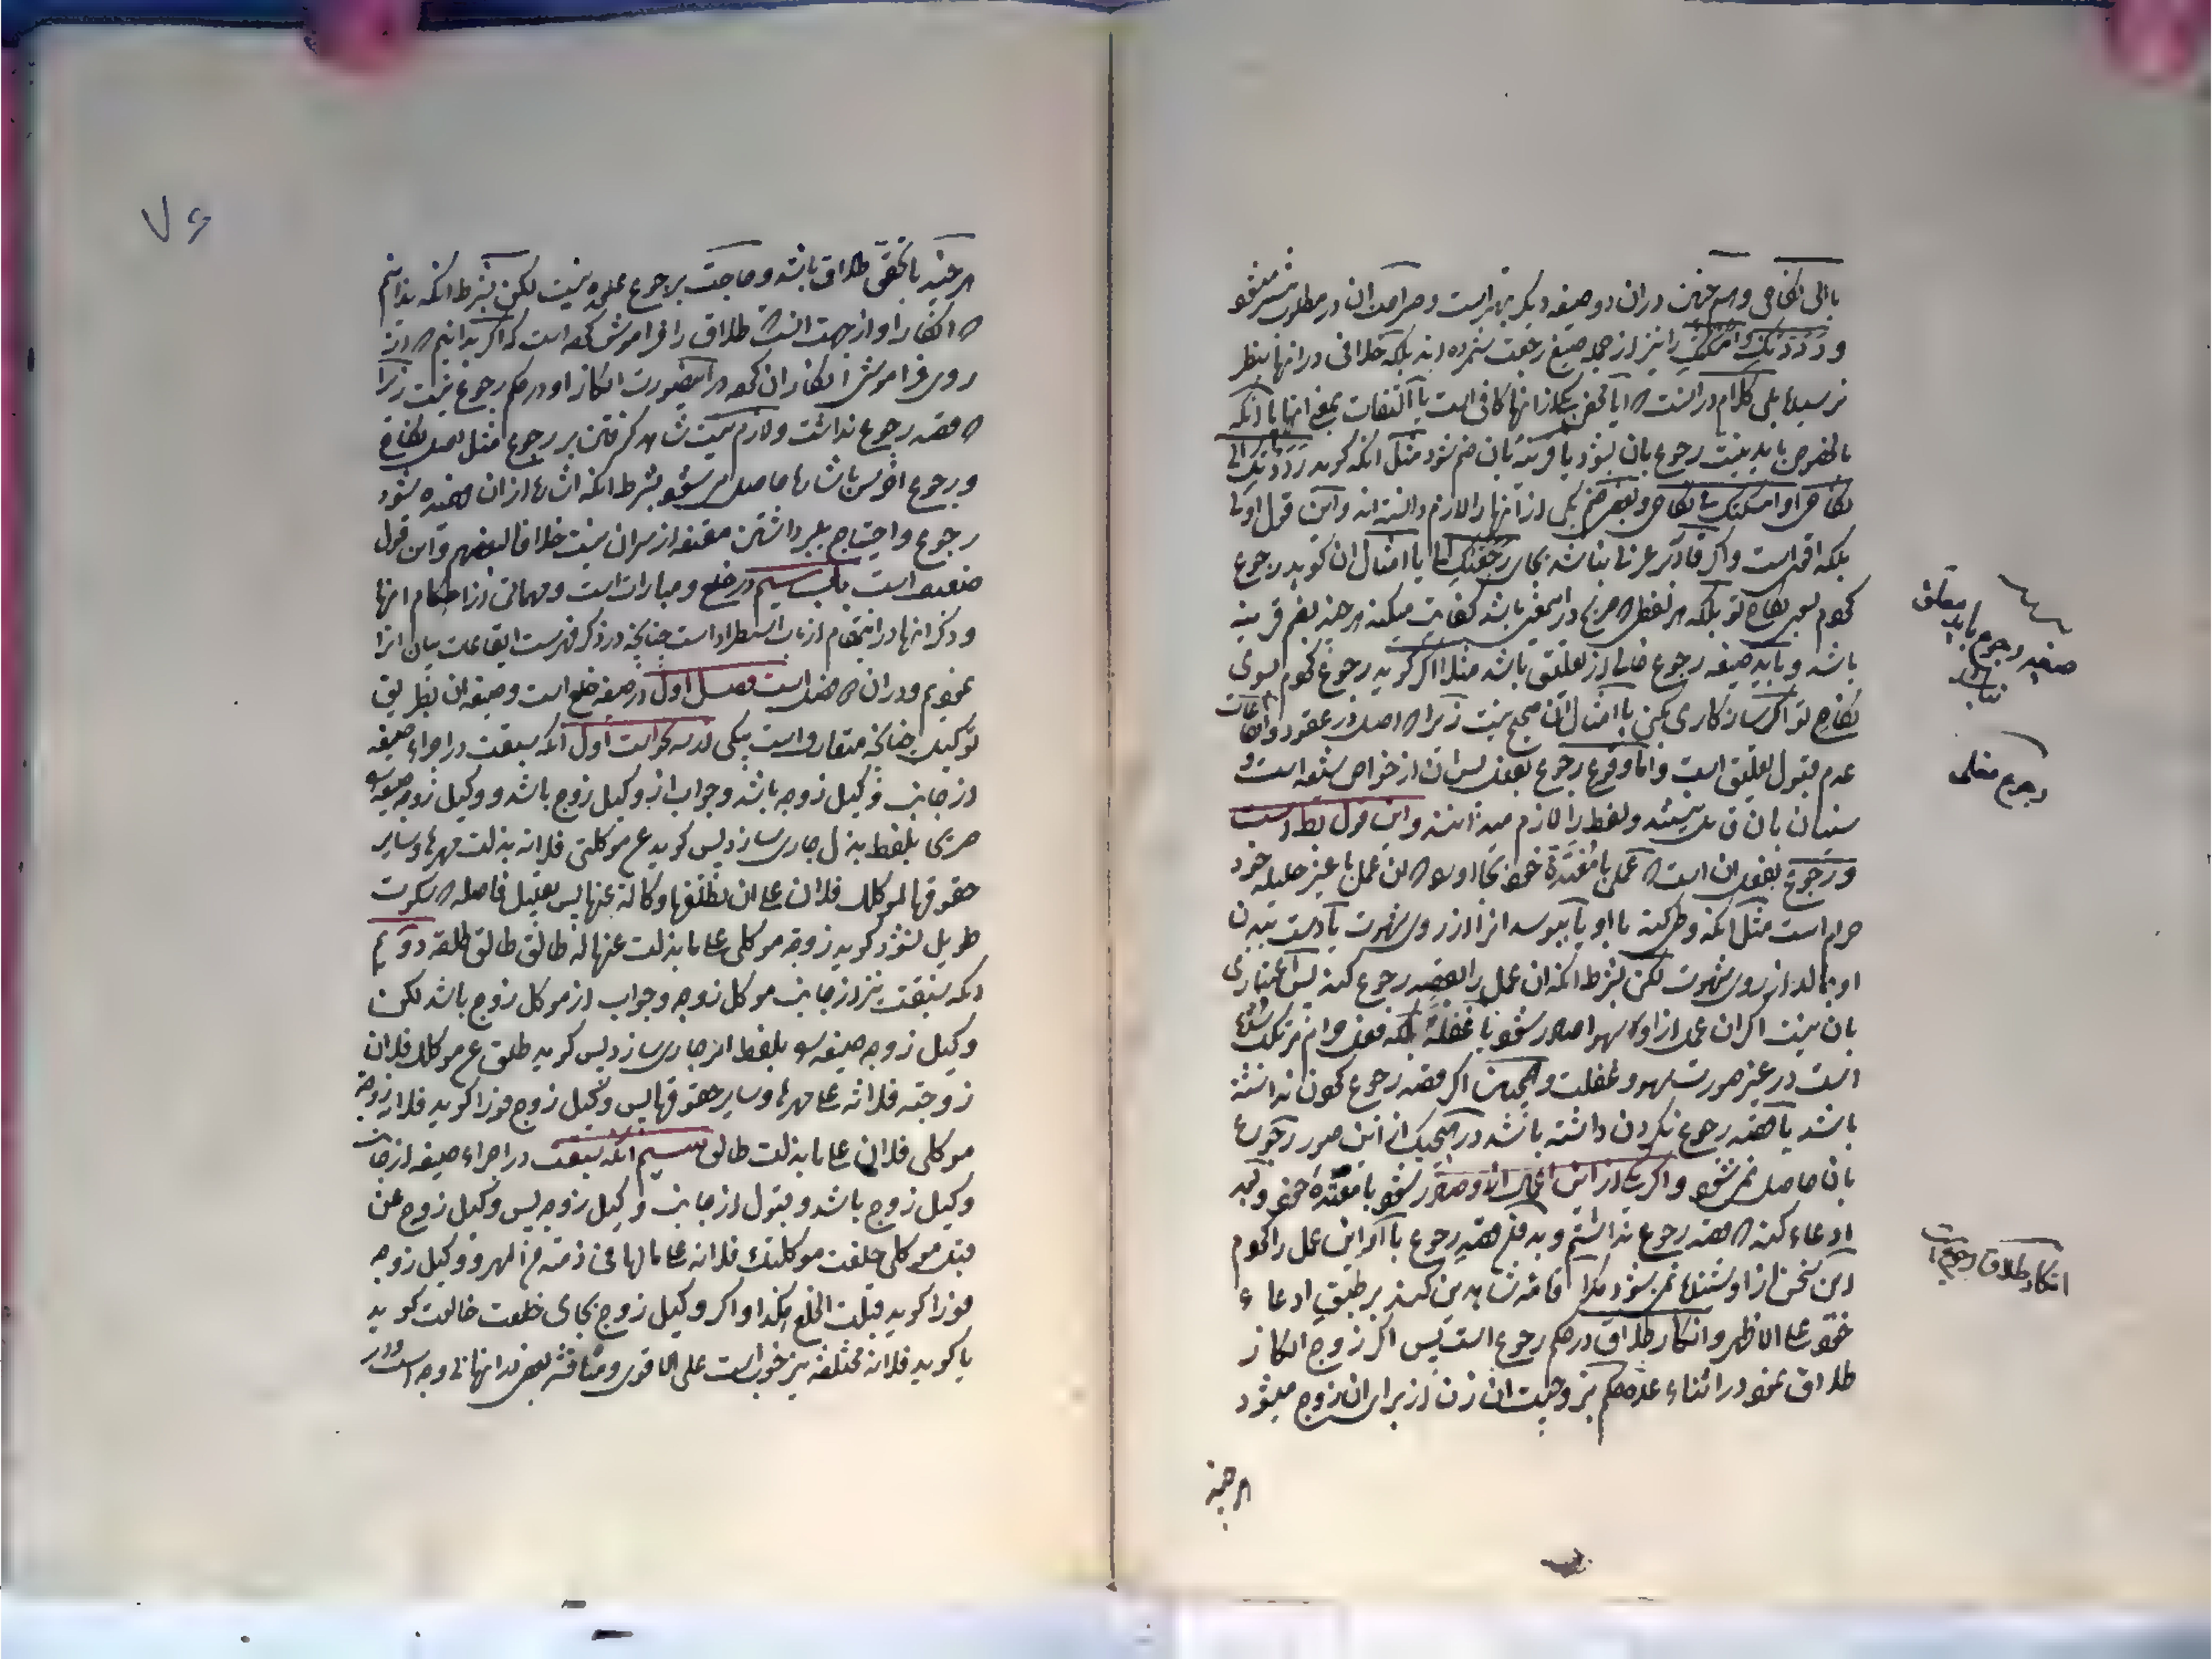 یا الی نکاحی و همچنین در آن دو صیغه دیگر بهتر است و صراحت آن در مطلوب بیشتر میشود
و رددتک و امسکتک را نیز از جمله صیغ رجعت شمرده‌اند بلکه خلافی در آنها بنظر
نرسیده بلی کلام در آنست که آیا محض یکی از آنها کافی است یا التفات بمعنی آنها یا آنکه
بالخصوص باید نیت رجوع بآن بشود یا قرینه بآن ضم شود مثل آنکه گوید رددتک الی
نکاحی او امسکتک علی نکاحی و بعضی ضم یکی از آنها را لازم دانسته‌اند و این قول اولی
بلکه اقوی است و اگر قادر بر عربی نباشد بجای رجعتک یا امثال آن گوید رجوع
کردم بسوی نکاح تو بلکه هر لفظی که صریح در این معنی باشد کفایت میکند هر چند بضم قرینه
باشد و باید صیغه رجوع خالی از تعلیق باشد مثلا اگر گوید رجوع کردم بسوی
نکاح تو اگر سازگاری بکنی یا امثال آن صحیح نیست زیرا که اصل در عقود و ایقاعات
عدم قبول تعلیق است و اما وقوع رجوع بفعل پس آن از خواص شیعه است و
سنیان بآن قایل نیستند و لفظ را لازم میدانند و این قول بط است
و رجوع بفعل آن است که عملی با معتده خود بجا آورد که آن عمل با غیر حلیله خود
حرام است مثل آنکه وطی کند با او یا ببوسد او را از روی شهوت یا دست ببدن
او بمالد از روی شهوت لکن بشرط آنکه آن عمل را بقصد رجوع کند پس اعتباری
بآن نیست اگر آن عمل از او سهوا صادر شود یا غفلة بلکه فعل حرام مرتکب شده
است در غیر صورت سهو و غفلت و همچنین اگر قصد رجوع کردن نداشته
باشد یا قصد رجوع نکردن داشته باشد در هیچیک از این صور رجوع
بآن حاصل نمیشود و اگر یکی از این اعمال از او صادر شود با معتده خود و بعد
ادعاء کند که قصد رجوع نداشتم و بدون قصد رجوع با او این عمل را کردم
این سخن از او شنیده نمیشود مگر اقامه شاهدین کند بر طبق ادعاء
خود علی الاظهر و انکار طلاق در حکم رجوع است پس اگر زوج انکار
طلاق نمود در اثناء عده حکم بزوجیت آن زن از برای آن زوج میشود
هر چند
صیغه رجوع باید معلق نباشد
رجوع فعلی
انکار طلاق رجوع است
۷۶
هر چند با تحقق طلاق باشد و حاجت برجوع علیحده نیست لکن بشرط آنکه ندانیم
که انکار او از جهت آنست که طلاق را فراموش کرده است که اگر بدانیم که از
روی فراموشی انکار آن کرده در اینصورت انکار او در حکم رجوع نیست زیرا
که قصد رجوع نداشت و لازم نیست شاهد گرفتن بر رجوع مثل اصل نکاح
و رجوع اخرس باشاره حاصل میشود بشرط آنکه اشاره از آن فهمیده شود
رجوع و احتیاج ببرداشتن مقنعه از سر آن نیست خلافا لبعضهم و این قول
ضعیف است باب سیم در خلع و مبارات است و مهماتی از احکام آنها
و ذکر آنها در این مقام از باب استطراد است چنانچه در ذکر فهرست ایقاعات بیان آنرا
نمودیم و در آن فصل است فصل اول در صیغه خلع است و صیغه آن بطریق
توکیل چنانچه متعارف است بیکی از سه نحو است اول آنکه سبقت در اجراء صیغه
از جانب وکیل زوجه باشد و جواب از وکیل زوج باشد و وکیل زوجه صیغه
جاری بلفظ بذل جاری سازد پس گوید عن موکلتی فلانه بذلت مهرها و سایر
حقوقها لموکلک فلان علی ان تطلقها وکالة عنها پس بعد بی فاصله که سکوت
طویل نشود گوید زوجه موکلی علی ما بذلت عنها له طالق طالق طلقه دویم
آنکه سبقت نیز از جانب موکل زوجه و جواب از موکل زوج باشد لکن
وکیل زوجه صیغه بلفظ امر جاری سازد پس گوید طلق عن موکلک فلان
زوجته فلانه علی مهرها و سایر حقوقها پس وکیل زوج فورا گوید فلانه زوجه
موکلی فلان علی ما بذلت طالق سیم آنکه سبقت در اجراء صیغه از جانب
وکیل زوج باشد و قبول از جانب وکیل زوجه پس وکیل زوج عن
قبل موکلی خلعت موکلتک فلانه علی ما لها فی ذمته من المهر و وکیل زوجه
فورا گوید قبلت الخلع هکذا و اگر وکیل زوج بجای خلعت خالعت گوید
یا گوید فلانه مختلعه نیز خوب است علی الاقوی و مناقشه بعضی در آنها بی وجه است